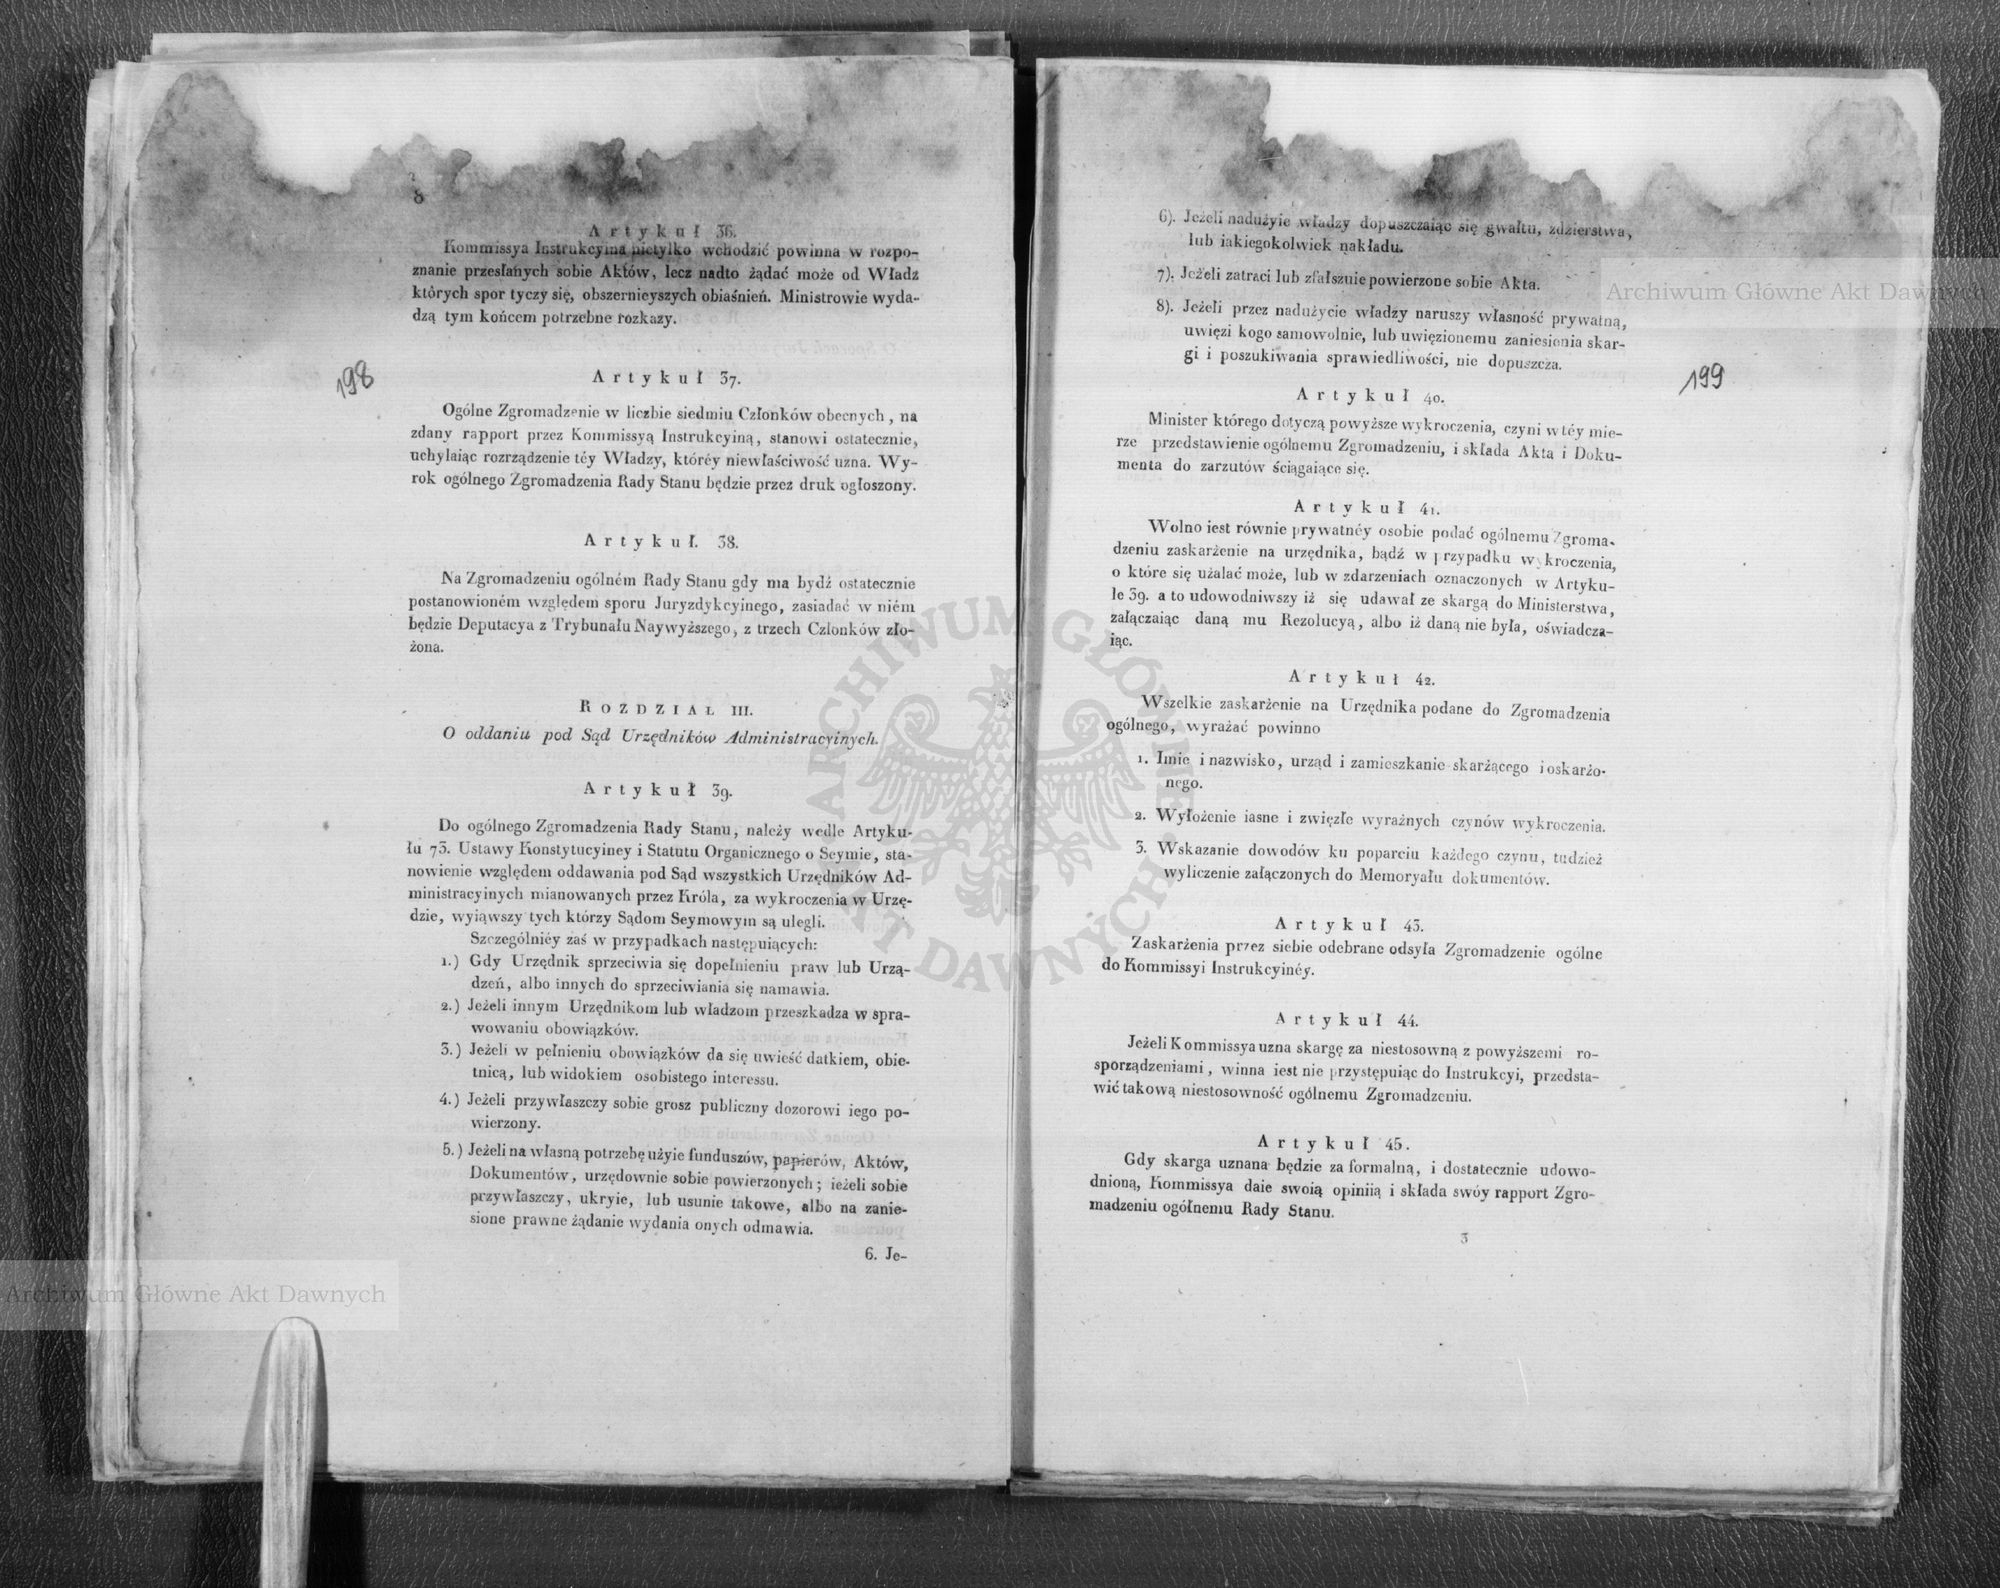 8
Artykuł 36.
Kommissya Instrukcyina nietylko wchodzić powinna w rozpo-
znanie przesłanych sobie Aktów, lecz nadto żądać może od Władz
których spor tyczy się, obszernieyszych obiaśnień. Ministrowie wyda-
dzą tym końcem potrzebne rozkazy.
198
Artykuł 37.
Ogólne Zgromadzenie w liczbie siedmiu Członków obecnych, na
zdany rapport przez Kommissyą Instrukcyiną, stanowi ostatecznie,
uchylaiąc rozrządzenie téy Władzy, któréy niewłaściwość uzna. Wy-
rok ogólnego Zgromadzenia Rady Stanu będzie przez druk ogłoszony.
Artykuł. 38.
Na Zgromadzeniu ogólném Rady Stanu gdy ma bydź ostatecznie
postanowioném względem sporu Juryzdykcyinego, zasiadać w niém
będzie Deputacya z Trybunału Naywyższego, z trzech Członków zło-
żona.
ROZDZIAŁ III.
O oddaniu pod Sąd Urzędników Administracyinych.
Artykuł 39.
Do ogólnego Zgromadzenia Rady Stanu, należy wedle Artyku-
łu 73. Ustawy Konstytucyiney i Statutu Organicznego o Seymie, sta-
nowienie względem oddawania pod Sąd wszystkich Urzędników Ad-
ministracyinych mianowanych przez Króla, za wykroczenia w Urzę-
dzie, wyiąwszy tych którzy Sądom Seymowym są ulegli.
Szczególniéy zaś w przypadkach następuiących:
1.) Gdy Urzędnik sprzeciwia się dopełnieniu praw lub Urzą-
dzeń, albo innych do sprzeciwiania się namawia.
2.) Jeżeli innym Urzędnikom lub władzom przeszkadza w spra-
wowaniu obowiązków.
3.) Jeżeli w pełnieniu obowiązków da się uwieść datkiem, obie-
tnicą, lub widokiem osobistego interessu.
4.) Jeżeli przywłaszczy sobie grosz publiczny dozorowi iego po-
wierzony.
5.) Jeżeli na własną potrzebę użyie funduszów, papierów, Aktów,
Dokumentów, urzędownie sobie powierzonych; ieżeli sobie
przywłaszczy, ukryie, lub usunie takowe, albo na zanie-
sione prawne żądanie wydania onych odmawia.
6. Je-
6). Jeżeli nadużyie władzy dopuszczaiąc się gwałtu, zdzierstwa,
lub iakiegokolwiek nakładu.
7). Jeżeli zatraci lub zfałszuie powierzone sobie Akta.
8). Jeżeli przez nadużycie władzy naruszy własność prywatną,
uwięzi kogo samowolnie, lub uwięzionemu zaniesienia skar-
gi i poszukiwania sprawiedliwości, nie dopuszcza.
199
Artykuł 40.
Minister którego dotyczą powyższe wykroczenia, czyni w téy mie-
rze przedstawienie ogólnemu Zgromadzeniu, i składa Akta i Doku-
menta do zarzutów ściągaiące się.
Artykuł 41.
Wolno iest równie prywatnéy osobie podać ogólnemu Zgroma-
dzeniu zaskarżenie na urzędnika, bądź w przypadku wykroczenia,
o które się użalać może, lub w zdarzeniach oznaczonych w Artyku-
le 39. a to udowodniwszy iż się udawał ze skargą do Ministerstwa,
załączaiąc daną mu Rezolucyą, albo iż daną nie była, oświadcza-
iąc.
Artykuł 42.
Wszelkie zaskarżenie na Urzędnika podane do Zgromadzenia
ogólnego, wyrażać powinno
1. Imie i nazwisko, urząd i zamieszkanie skarżącego i oskarżo-
nego.
2. Wyłożenie iasne i zwięzłe wyraźnych czynów wykroczenia.
3. Wskazanie dowodów ku poparciu każdego czynu, tudzież
wyliczenie załączonych do Memoryału dokumentów.
Artykuł 43.
Zaskarżenia przez siebie odebrane odsyła Zgromadzenie ogólne
do Kommissyi Instrukcyinéy.
Artykuł 44.
Jeżeli Kommissya uzna skargę za niestosowną z powyższemi ro-
sporządzeniami, winna iest nie przystępuiąc do Instrukcyi, przedsta-
wić takową niestosowność ogólnemu Zgromadzeniu.
Artykuł 45.
Gdy skarga uznana będzie za formalną, i dostatecznie udowo-
dnioną, Kommissya daie swoią opiniią i składa swóy rapport Zgro-
madzeniu ogólnemu Rady Stanu.
3
Archiwum Główne Akt Dawnych
Archiwum Główne Akt Dawnych
ARCHIWUM GŁÓWNE AKT DAWNYCH